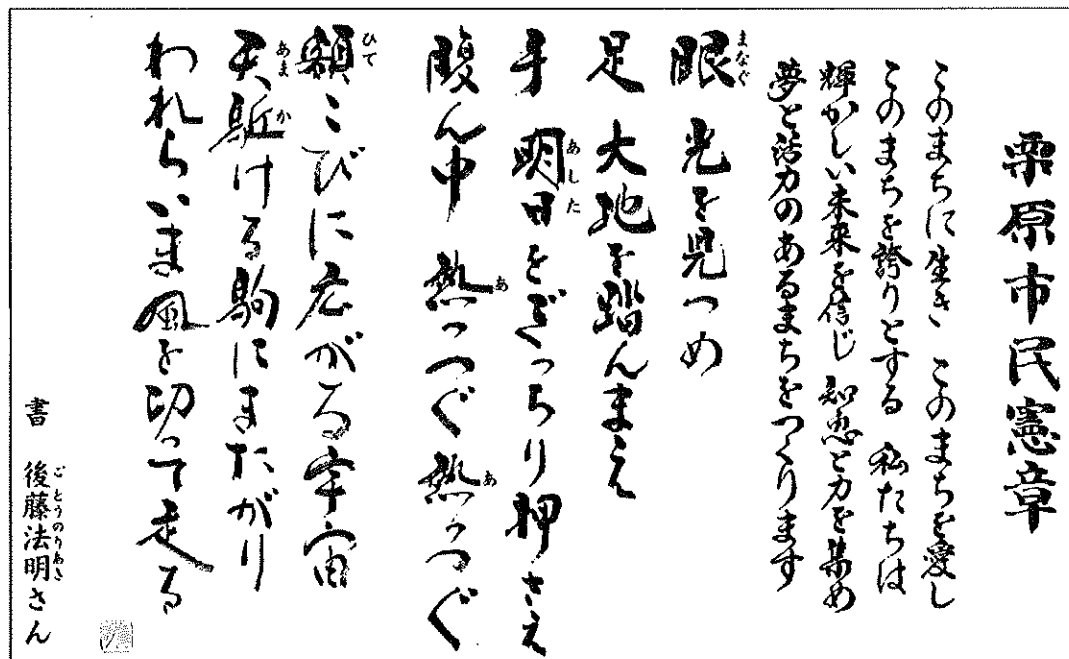 栗原市民憲章
このまちに生き このまちを愛し
このまちを誇りとする 私たちは
輝かしい未来を信じ 知恵と力を集め
夢と活力のあるまちをつくります
まなぐ
眼 光を見つめ
足 大地を踏んまえ
あした
手 明日をぎっちり押さえ
あ あ
腹ん中 熱っつぐ熱っつぐ
ひて
額こびに広がる宇宙
あま か
天駆ける駒にまたがり
われらいま風を切って走る
ごとうのりあき
書 後藤法明さん